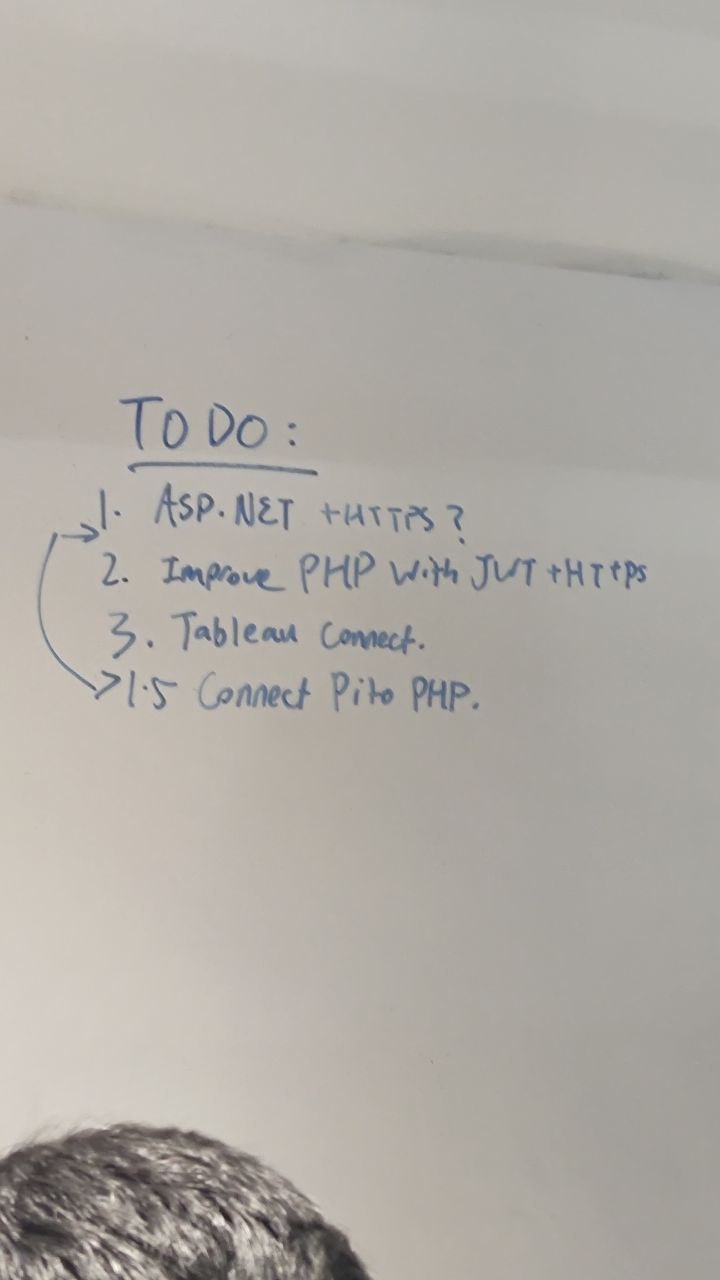 TO DO:
1. ASP.NET +HTTPS?
2. Improve PHP with JWT +HTTPS
3. Tableau Connect.
1.5 Connect Pi to PHP.